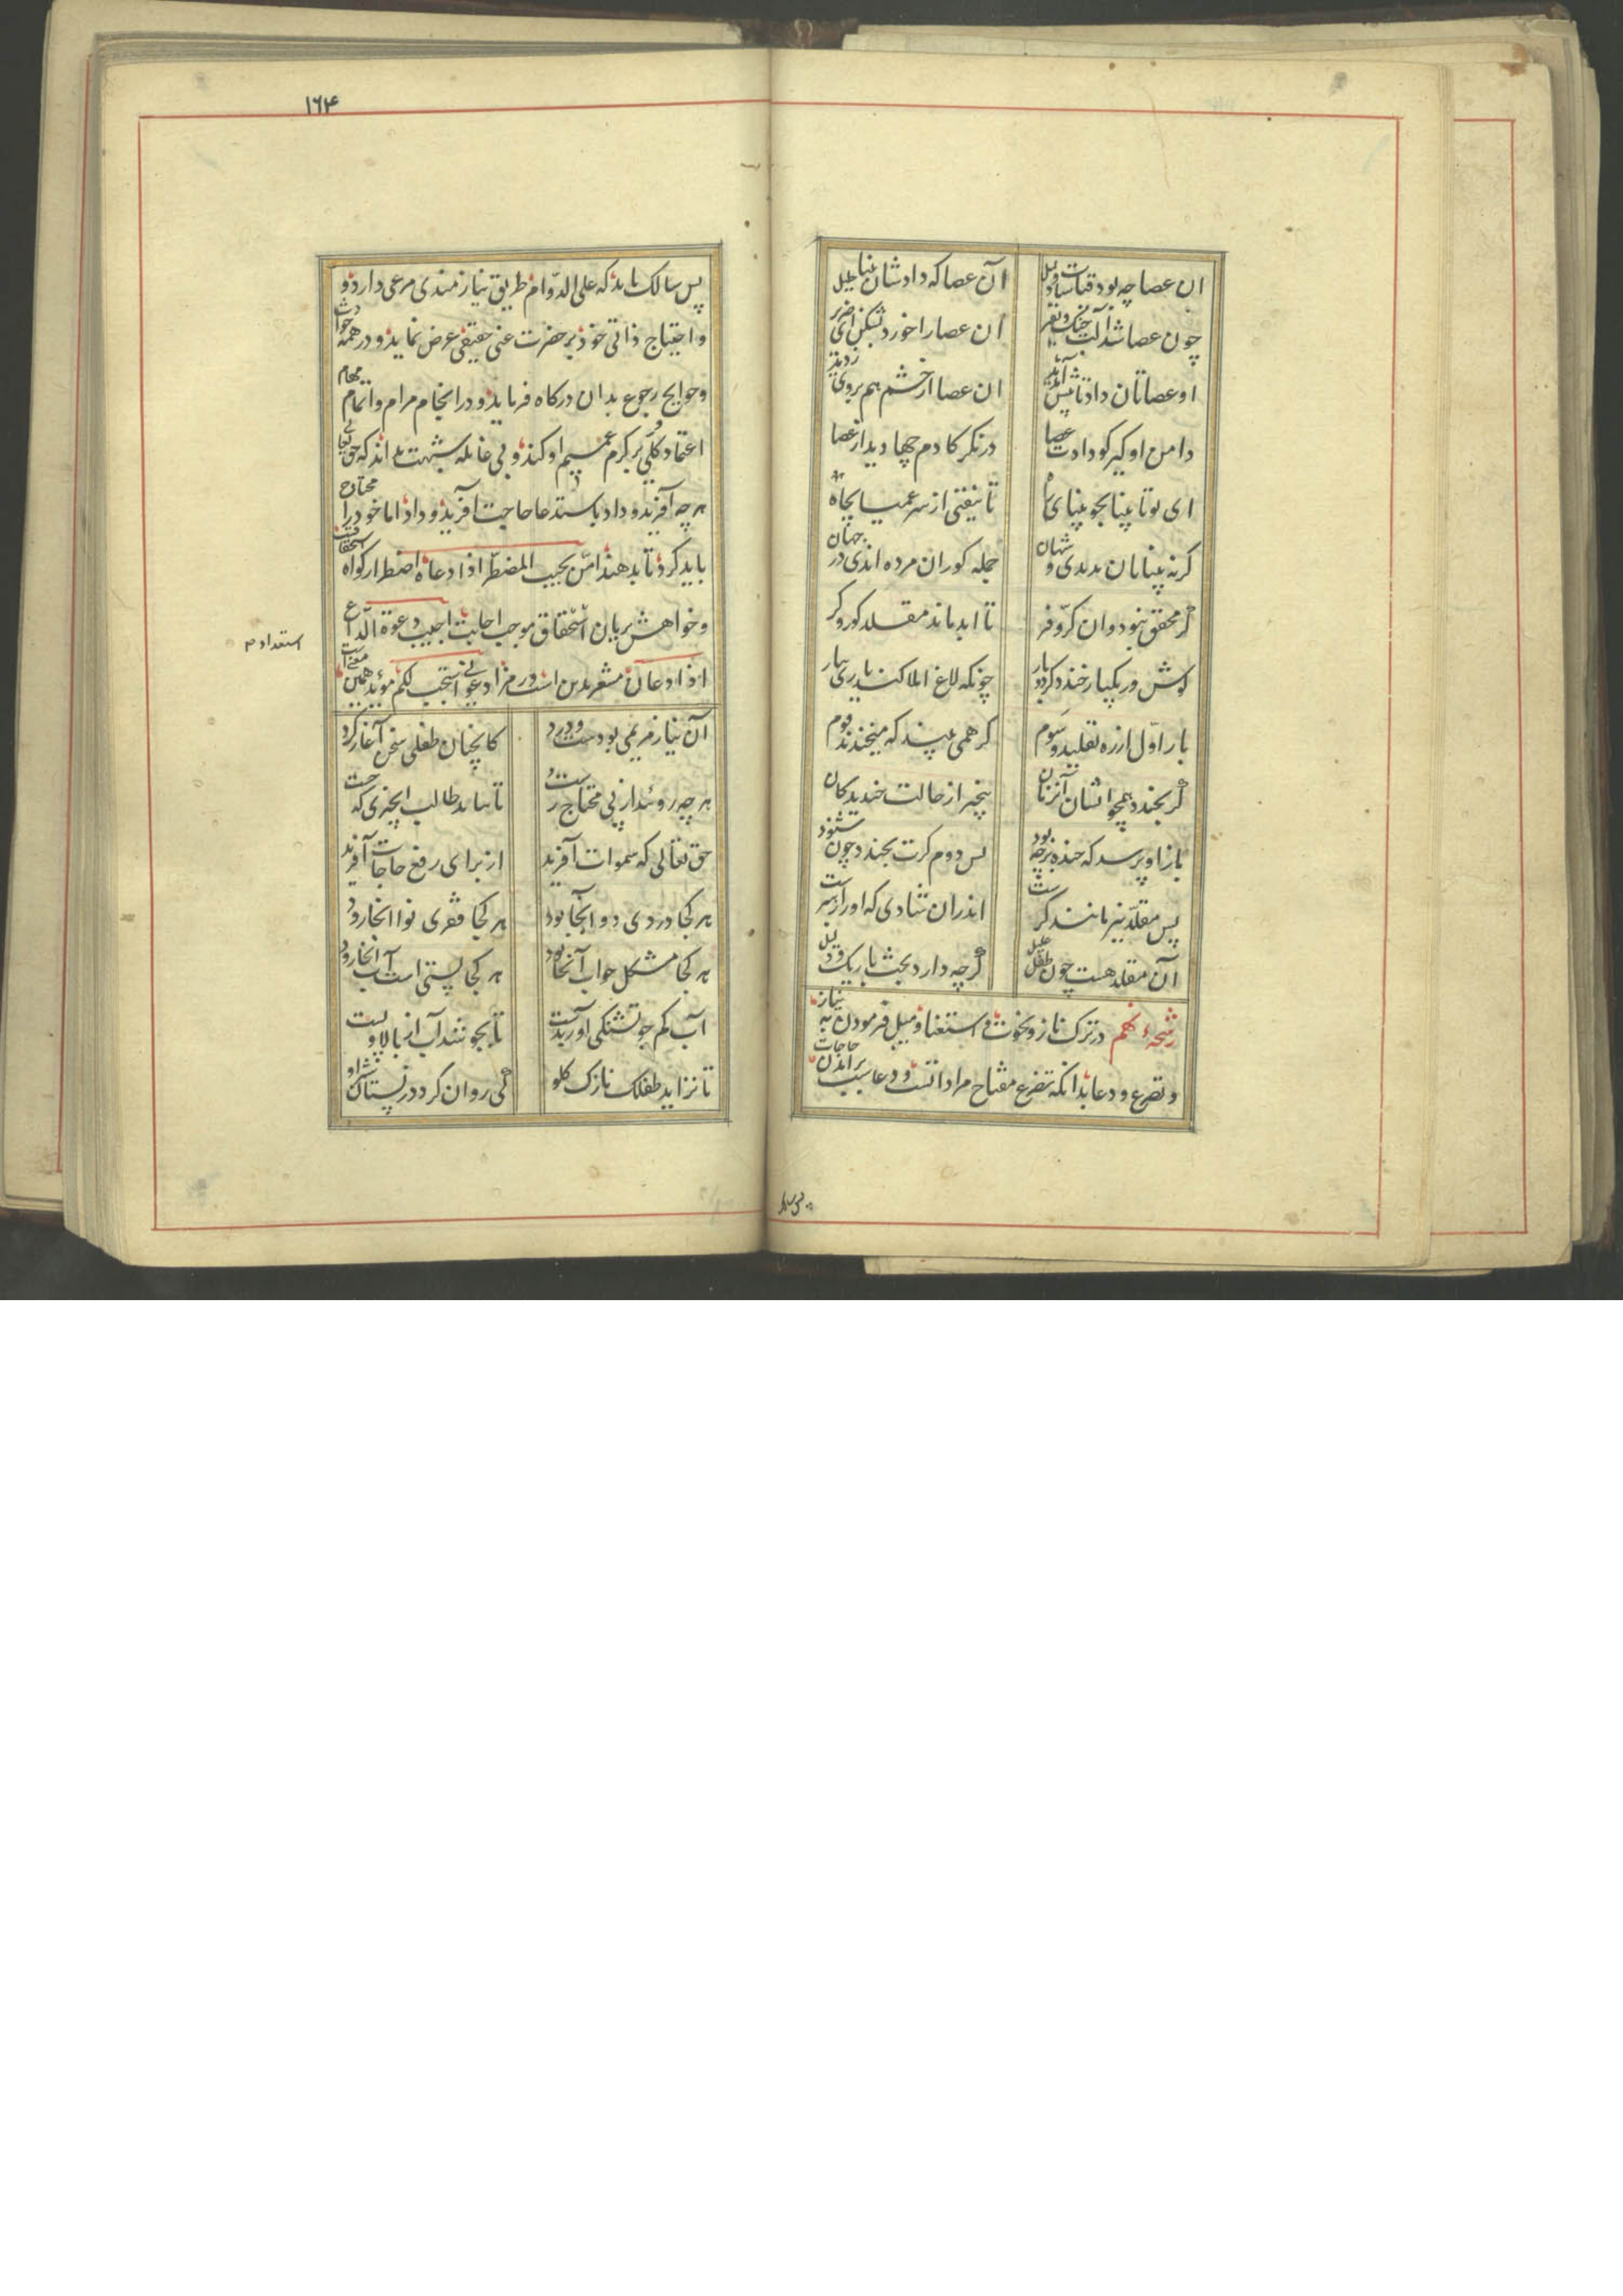 ان عصا چه بود قیاسات و دلیل آن عصا که دادشان بینا جلیل
چون عصا شد آلت جنک و نفیر ان عصا را خورد بشکن ای ضریر
او عصاتان داد تا پیش آئید ان عصا از خشم هم بروی زدید
دامن او کیر کو دادت عصا درنکر کادم چها دید از عصا
تا نیفتی از سر عمیا بچاه
کرنه بینایان بدندی و شهان جمله کوران مرده اندی در جهان
گر محقق نبود و ان کرّ و فر تا ابد ماند مقلد کور و کر
کوش ور یکبار خندد کر دو بار چونکه لاغ املا کند یاری بیار
بار اوّل از ره تقلید و سوم کر همی بیند که میخندند قوم
گر بخندد همچو ایشان آنزمان بیخبر از حالت خندیدکان
باز او پرسد که خنده برچه بود پس دوم کرت بخندد چون شنود
پس مقلّد نیز مانند کر ست اندران شادی که او را در سر ست
آن مقلد هست چون طفل علیل گرچه دارد بحث باریک و دلیل
رشحهء نهم در ترک ناز و نخوت و استغنا و میل فرمودن به نیاز
و تضرع و دعا بدانکه تضرع مفتاح مراداتست و دعا سبب برامدن حاجات
پس سا
۱۶۴
پس سالک باید که علی الدّوام طریق نیازمندی مرعی دارد و
و احتیاج ذاتی خود بر حضرت غنی حقیقی عرض نماید و در همه حوادث
و حوایج رجوع بدان درکاه فرماید و در انجام مرام و اتمام مهام
اعتماد کلّی بر کرم عمیم او کند و بی غایله شبهت بداند که حق تعالی
هر چه آفرید و داد باستدعا حاجت آفرید و داد اما خود را محتاج
باید کرد تا بدهند امّن یجیب المضطرّ اذا دعاه اضطرار کواه استحقاقست
و خواهش بزبان استحقاق موجب اجابت اجیب دعوة الدّاع
استعداد م
اذا دعان مشعر بدین است و رمز ادعونی استجب لکم مؤید همین معنی است
آن نیاز مریمی بودست و درد کانچنان طفلی سخن آغاز کرد
هر چه روئید از پی محتاج رست تا بیابد طالب چیزی که جست
حق تعالی که سموات آفرید از برای رفع حاجات آفرید
هر کجا دردی دوا آنجا بود هر کجا فقری نوا انجا رود
هر کجا مشکل جواب آنجا بود هر کجا پستی است آب انجا رود
آب کم جو تشنکی اور بدست تا بجوشند آب از بالا و پست
تا نزاید طفلک نازک کلو گی روان کردد ز پستان شیر او